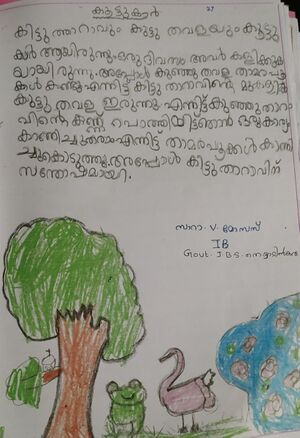 കൂട്ടുകാർ
കിട്ടു താറാവും കുട്ടു തവളയും കൂട്ടു
കാർ ആയിരുന്നു. ഒരു ദിവസം അവർ കളിക്കുക
യായിരുന്നു. അപ്പോൾ കുഞ്ഞു തവള താമരപൂ
ക്കൾ കണ്ടു എന്നിട്ട് കിട്ടു താറാവിന്റെ മുകളിൽ
കുട്ടു തവള ഇരുന്നു എന്നിട്ട് കുഞ്ഞു താറാ
വിന്റെ കണ്ണ് പൊത്തിയിട്ട് ഞാൻ ഒരു കാര്യം
കാണിച്ചു തരാം എന്നിട്ട് താമരപൂക്കൾ കാണി
ച്ചുകൊടുത്തു. അപ്പോൾ കിട്ടു താറാവിന്
സന്തോഷമായി.
സാറാ. V. മോസസ്
IB
Govt. J.B.S.